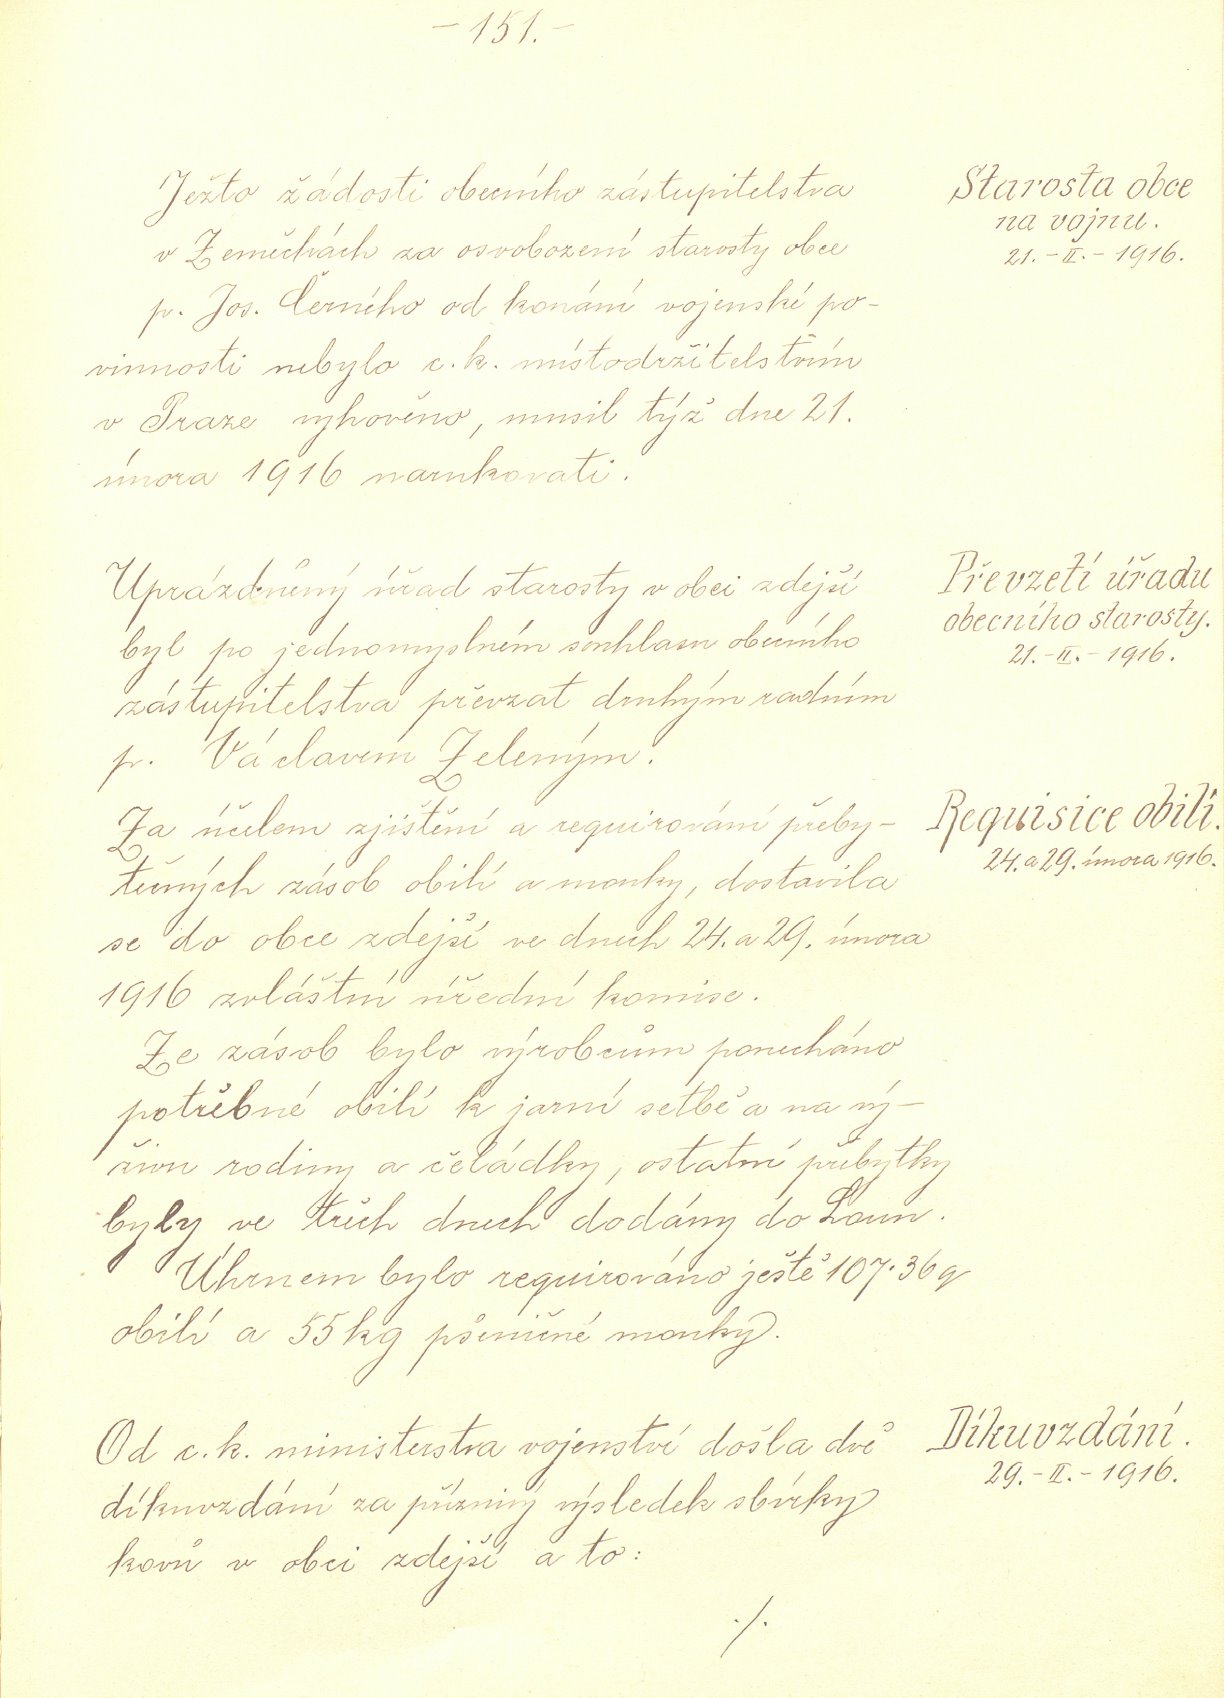 – 151. –
Starosta obce
na vojnu.
21. – II. – 1916.
Ježto žádosti obecního zástupitelstva
v Zeměchách za osvobození starosty obce
p. Jos. Černého od konání vojenské po-
vinnosti nebylo c. k. místodržitelstvím
v Praze vyhověno, musil týž dne 21.
února 1916 narukovati.
Převzetí úřadu
obecního starosty.
21. – II. – 1916.
Uprázdněný úřad starosty v obci zdejší
byl po jednomyslném souhlasu obecního
zástupitelstva převzat druhým radním
p. Václavem Zeleným.
Requisice obilí.
24. a 29. února 1916.
Za účelem zjištění a requirování přeby-
tečných zásob obilí a mouky, dostavila
se do obce zdejší ve dnech 24. a 29. února
1916 zvláštní úřední komise.
Ze zásob bylo výrobcům ponecháno
potřebné obilí k jarní setbě a na vý-
živu rodiny a čeládky, ostatní přebytky
byly ve třech dnech dodány do Loun.
Úhrnem bylo requirováno ještě 107·36 q
obilí a 55 kg pšeničné mouky.
Díkuvzdání.
29. – II. – 1916.
Od c. k. ministerstva vojenství došla dvě
díkuvzdání za příznivý výsledek sbírky
kovů v obci zdejší a to:
./.